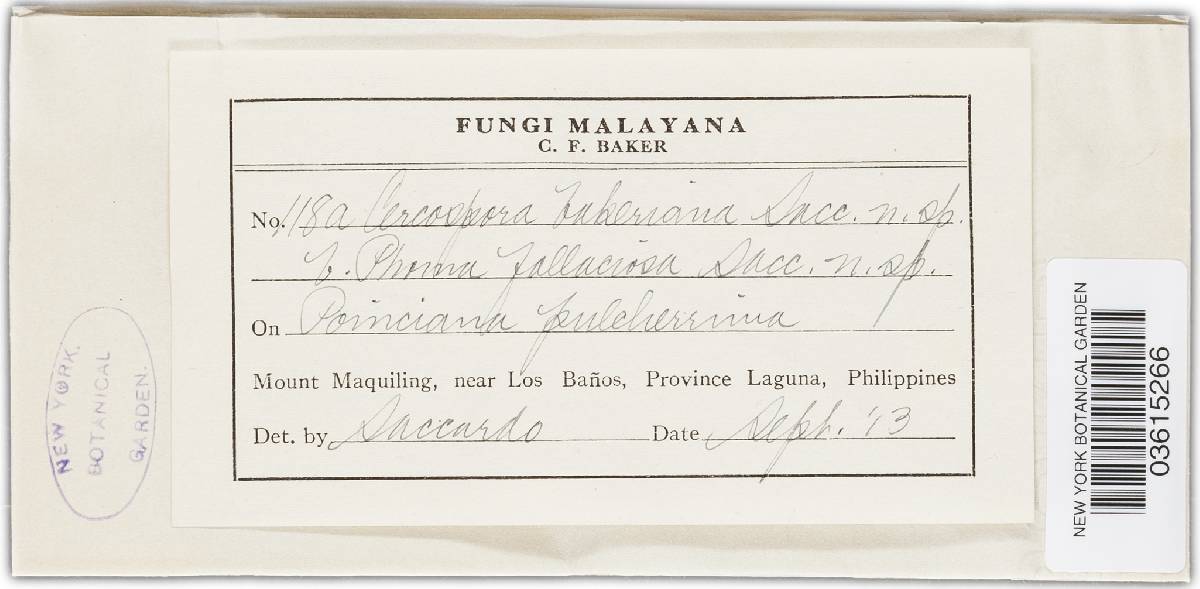 FUNGI MALAYANA
C. F. BAKER
No. 118a Cercospora bakeriana Sacc. n. sp.
b. Phoma fallaciosa Sacc. n. sp.
On Poinciana pulcherrima
Mount Maquiling, near Los Baños, Province Laguna, Philippines
Det. by Saccardo Date Sept. '13
NEW YORK
BOTANICAL
GARDEN.
NEW YORK BOTANICAL GARDEN
03615266